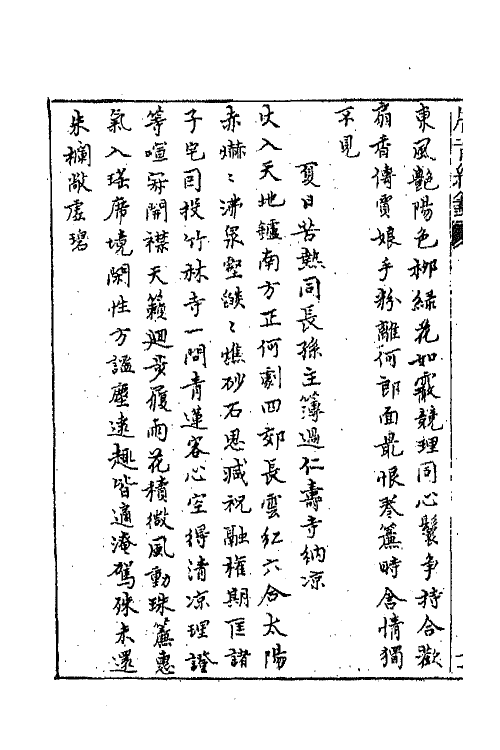 東風艷陽色柳綠花如霰競理同心鬟争持合歡
扇香傳賈娘手粉離何郎面最恨卷簾時含情獨
不見
夏日苦熱同長孫主簿過仁壽寺納凉
火入天地鑪南方正何劇四郊長雲紅六合太陽
赤爀〻沸泉壑焮〻燋砂石思減祝融權期匡諸
子宅因投竹林寺一問青蓮客心空得清凉理證
等喧寂開襟天籟廻步履雨花積微風動珠簾惠
氣入瑤席境閑性方謐塵遠趣皆適淹駕殊未還
朱欄敞虚碧